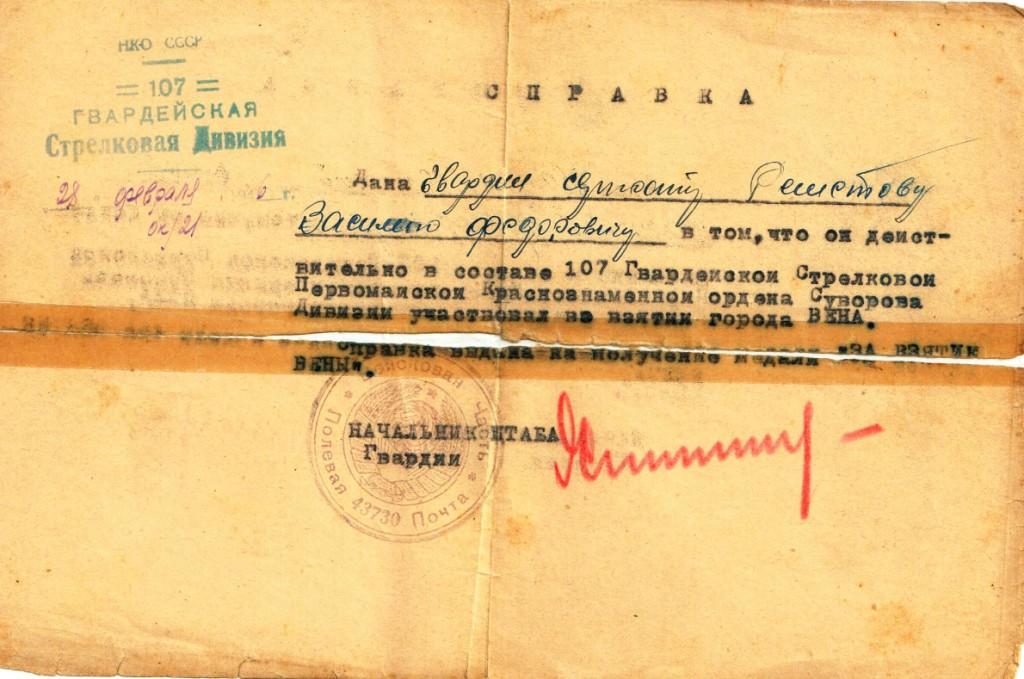 НКО СССР
= 107 =
ГВАРДЕЙСКАЯ
Стрелковая Дивизия
28 февраля 6 г.
СПРАВКА
Дана Гвардии сержанту
Василию Федоровичу в том, что он дейст-
вительно в составе 107 Гвардейской Стрелковой
Первомайской Краснознаменной ордена Суворова
Дивизии участвовал во взятии города ВЕНА.
Справка выдана на получение медали "ЗА ВЗЯТИЕ
ВЕНЫ".
НАЧАЛЬНИК ШТАБА
Гвардии
Войсковая Часть * Полевая 43730 Почта *